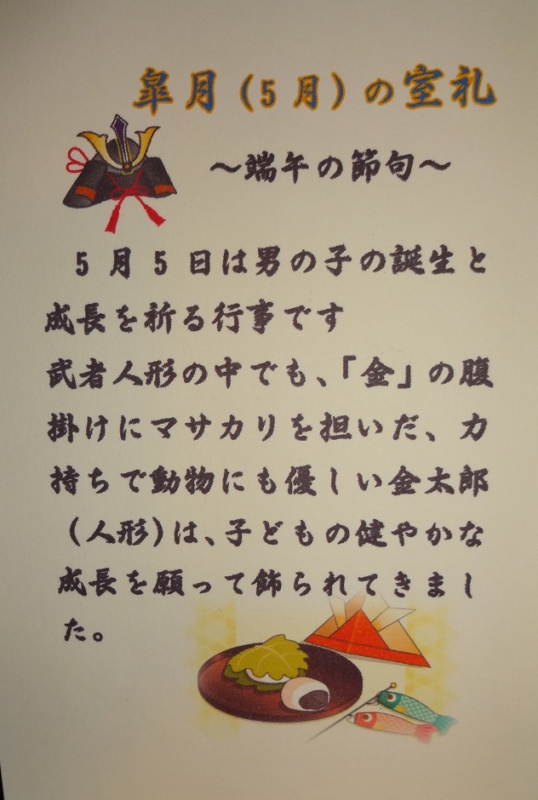 皐月(5月)の室礼
～端午の節句～
5月5日は男の子の誕生と
成長を祈る行事です
武者人形の中でも、「金」の腹
掛けにマサカリを担いだ、力
持ちで動物にも優しい金太郎
(人形)は、子どもの健やかな
成長を願って飾られてきまし
た。